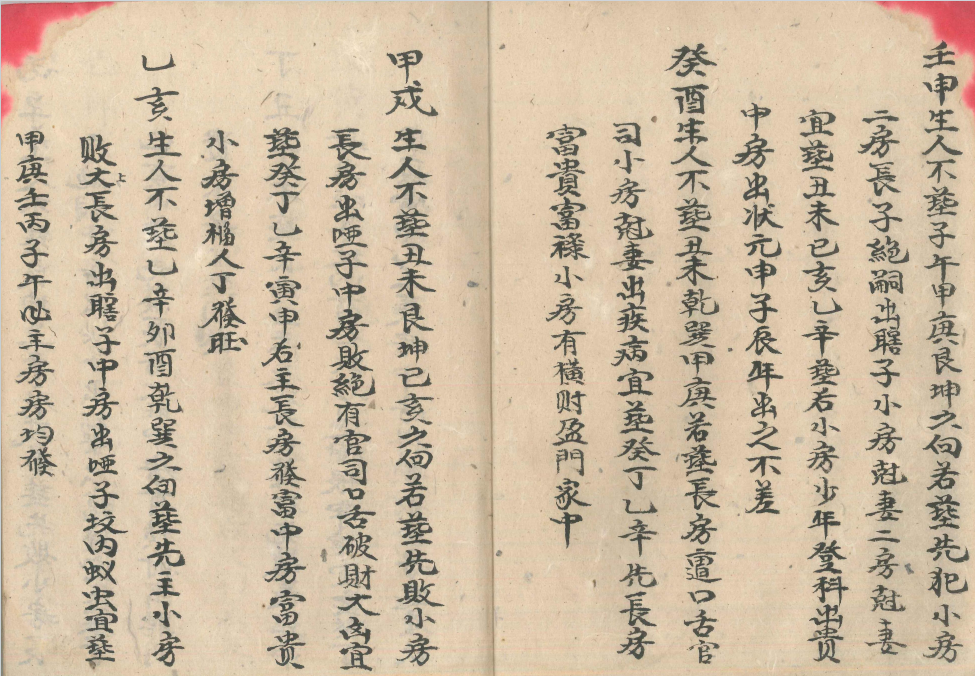 壬申生人不葬子午甲庚艮坤之向若葬先犯小房
二房長子絶嗣出瞎子小房尅妻二房尅妻
宜葬丑未巳亥乙辛葬后小房少年登科出贵
中房出状元申子辰年出之不差
癸酉生人不葬丑未乾巽甲庚若葬長房遭口舌官
司小房尅妻出疾病宜葬癸丁乙辛先長房
富貴富祿小房有横财盈門家中
甲戍生人不葬丑未艮坤巳亥之向若葬先敗小房
長房出啞子中房敗絕有官司口舌破財大凶宜
葬癸丁乙辛寅申后主長房發富中房富贵
小房增福人丁發旺
乙亥生人不葬乙辛卯酉乾巽之向葬先主小房
败大長房出瞎子中房出啞子坟内蚁虫宜葬
甲庚壬丙子午必主房房均發